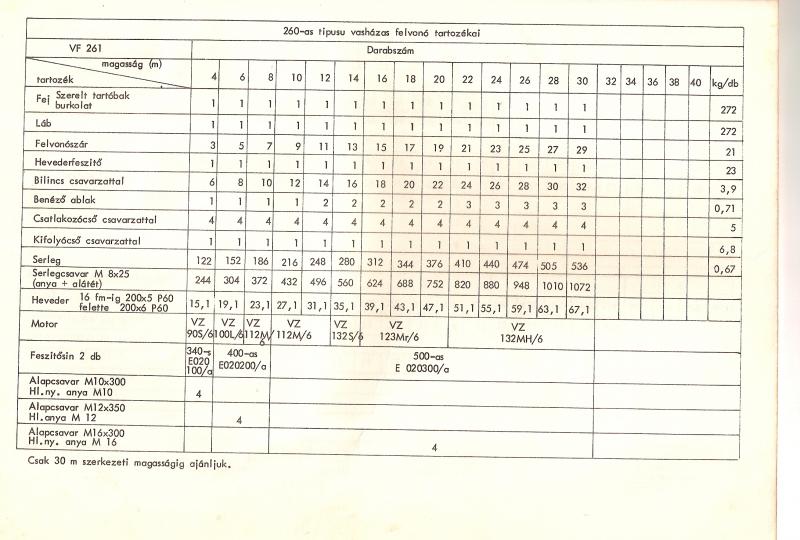 260-as tipusu vasházas felvonó tartozékai
VF 261 Darabszám
magasság (m)
tartozék 4 6 8 10 12 14 16 18 20 22 24 26 28 30 32 34 36 38 40 kg/db
Fej Szerelt tartóbak
burkolat 1 1 1 1 1 1 1 1 1 1 1 1 1 1 272
Láb 1 1 1 1 1 1 1 1 1 1 1 1 1 1 272
Felvonószár 3 5 7 9 11 13 15 17 19 21 23 25 27 29 21
Hevederfeszitő 1 1 1 1 1 1 1 1 1 1 1 1 1 1 23
Bilincs csavarzattal 6 8 10 12 14 16 18 20 22 24 26 28 30 32 3,9
Benéző ablak 1 1 1 1 2 2 2 2 2 3 3 3 3 3 0,71
Csatlakozócső csavarzattal 4 4 4 4 4 4 4 4 4 4 4 4 4 4 5
Kifolyócső csavarzattal 1 1 1 1 1 1 1 1 1 1 1 1 1 1 6,8
Serleg 122 152 186 216 248 280 312 344 376 410 440 474 505 536 0,67
Serlegcsavar M 8x25
(anya + alátét) 244 304 372 432 496 560 624 688 752 820 880 948 1010 1072
Heveder 16 fm-ig 200x5 P60
felette 200x6 P60 15,1 19,1 23,1 27,1 31,1 35,1 39,1 43,1 47,1 51,1 55,1 59,1 63,1 67,1
Motor VZ VZ VZ VZ VZ VZ VZ
90S/6 100L/6 112M/6 112M/6 132S/6 123Mr/6 132MH/6
Feszitősin 2 db 340-s E020 100/a 400-as E020200/a 500-as E 020300/a
Alapcsavar M10x300
Hl.ny. anya M10 4
Alapcsavar M12x350
Hl.anya M 12 4
Alapcsavar M16x300
Hl.ny. anya M 16 4
Csak 30 m szerkezeti magasságig ajánljuk.